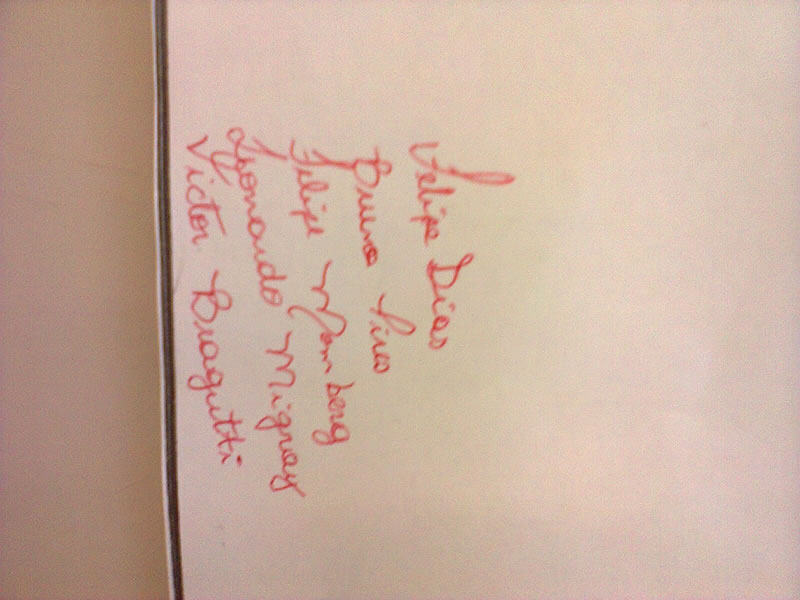 Felipe Dias
Bruno Pires
Filipe Momberg
Leonardo Mignoy
Victor Bragutti